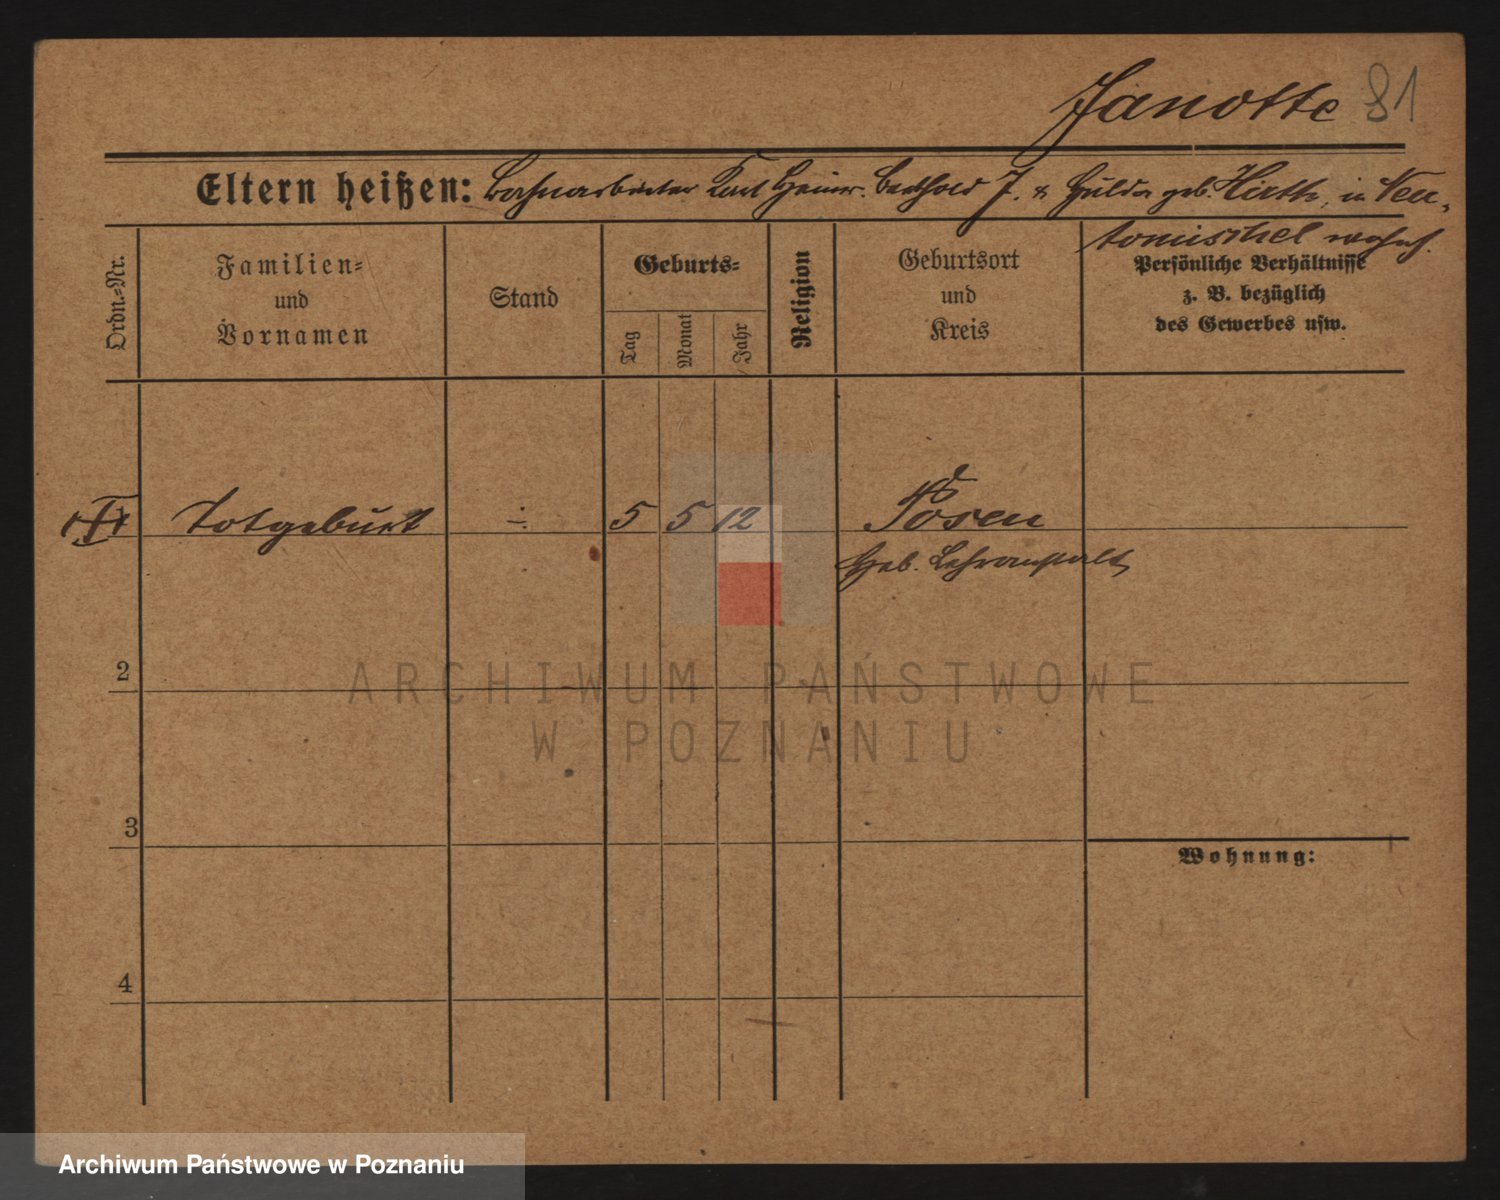 Janotte 81
Eltern heißen: Bahnarbeiter Karl Heinr. Berthold J. & Hulda geb. Hirth, in Neu-
tomischel wohnh.
Ordn.-Nr.
Familien-
und
Vornamen
Stand
Geburts-
Tag
Monat
Jahr
Religion
Geburtsort
und
Kreis
Persönliche Verhältnisse
z. B. bezüglich
des Gewerbes usw.
Totgeburt ÷ 5 5 12 Posen
Heb. Lehranstalt
2
3
4
Wohnung:
ARCHIWUM PAŃSTWOWE
W POZNANIU
Archiwum Państwowe w Poznaniu